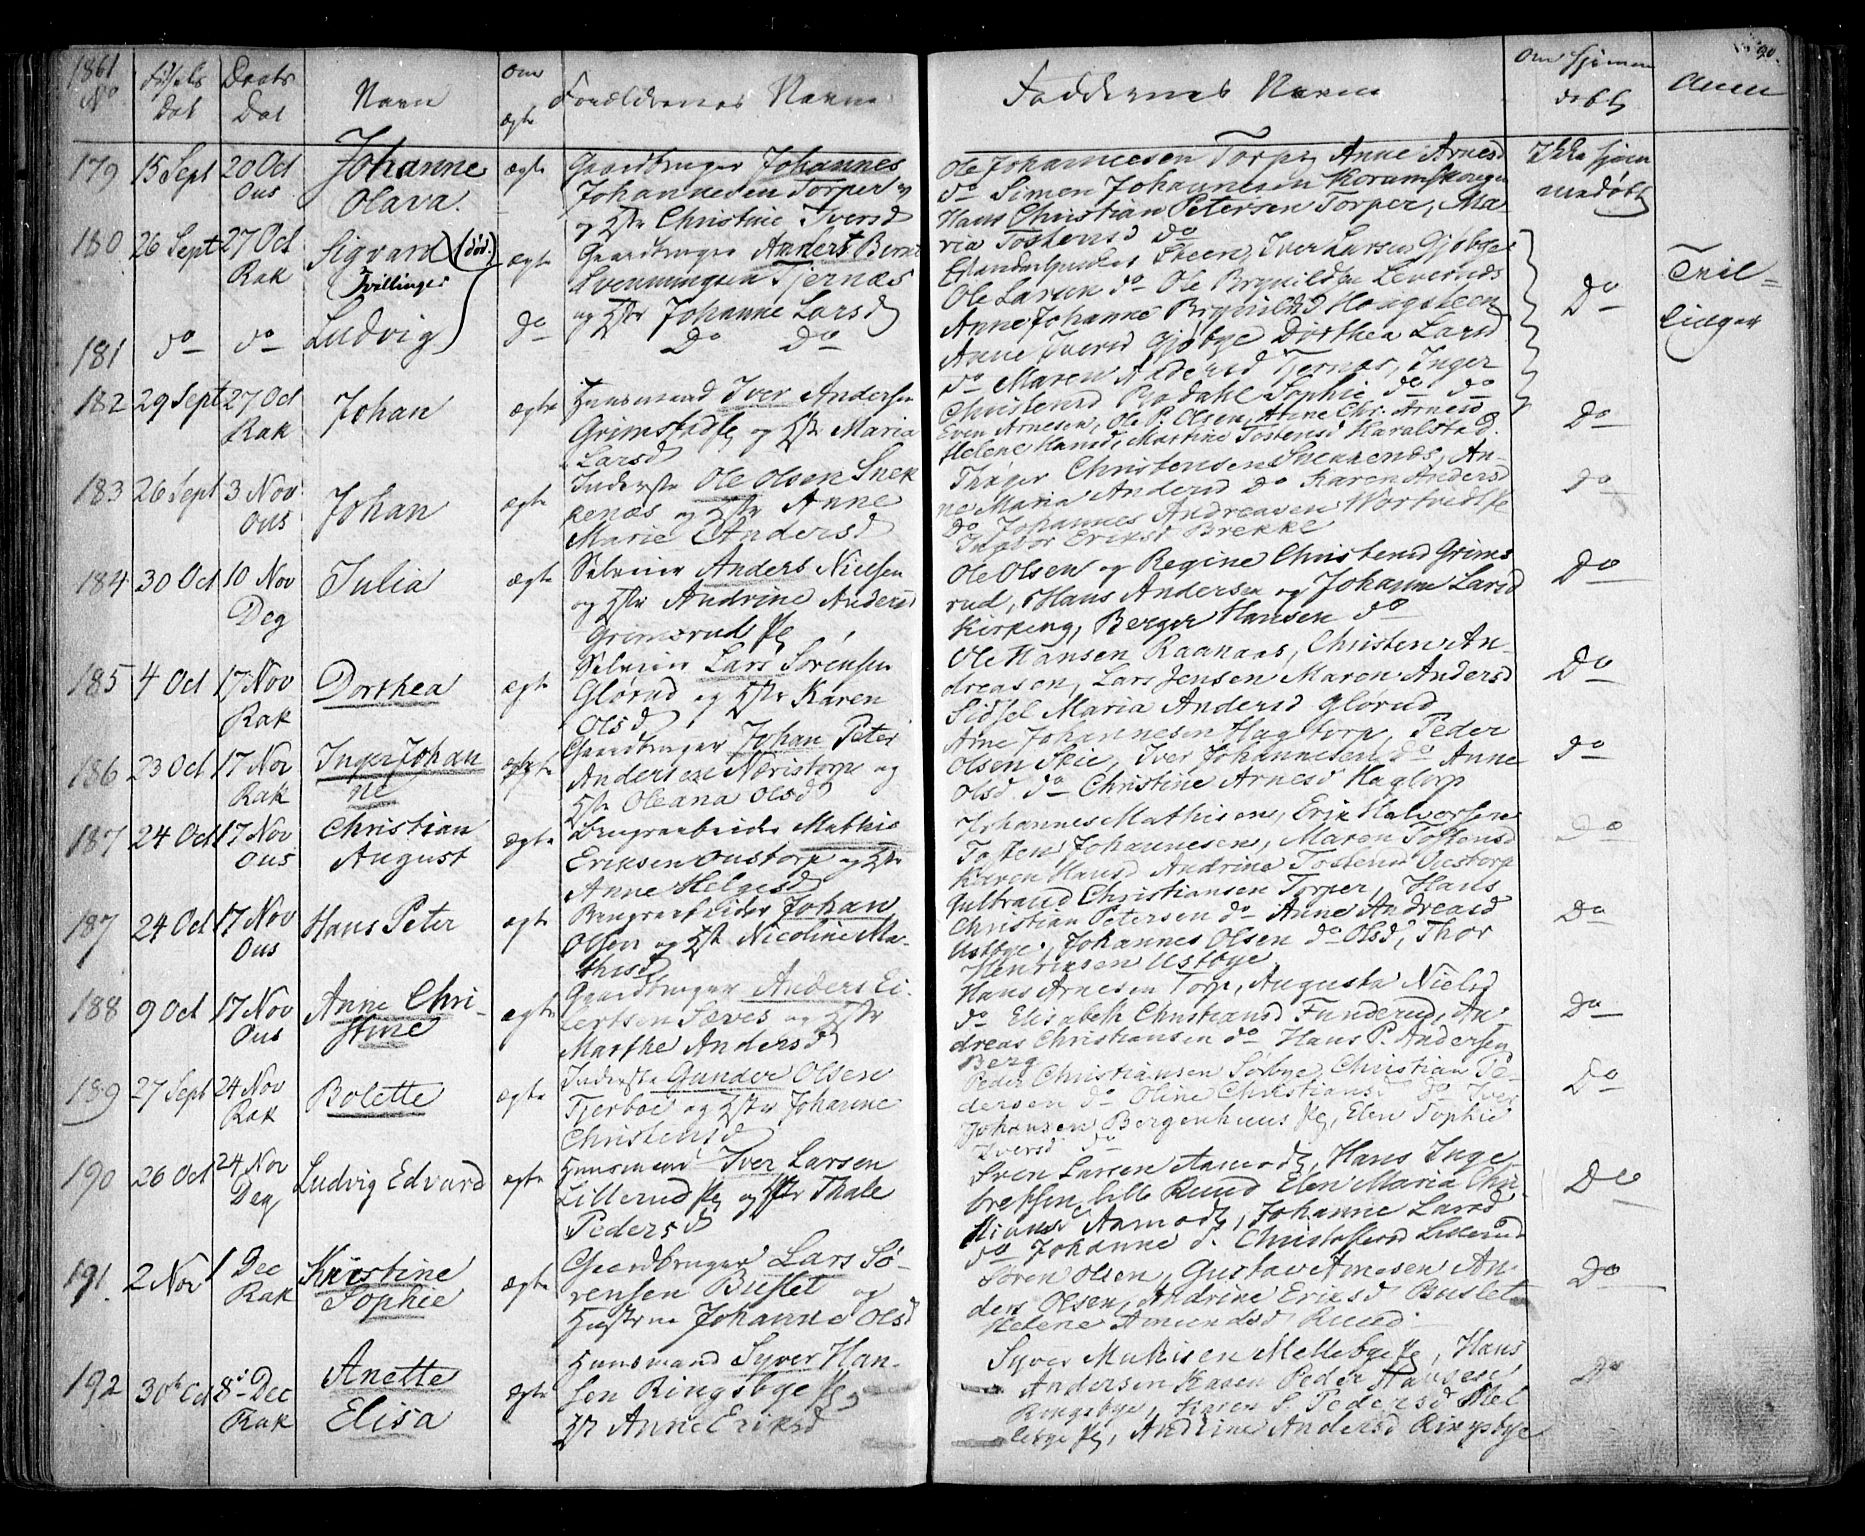 1861
No
Daabs
Dat Dat Navn om ægte Forældrenes Navne
Faddernes Navne
om hjemme
døbt
Anm
90.
179 15 Sept 20 Oct Ous Johanne Olava. ægte
Gaardbruger Johannes
Johannesen Torper
og Hstr Christine Iversd
Ole Johannesen Torper, Anne Arnesd
do Simon Johannesen
Hans Christian Petersen Torper, Ma
ria Tostensd do
Ikke hjem
medøbt
180 26 Sept 27 Oct Rak Sigvard (død) ægte
Tvillinger
Gaardbruger Anders Bernt
Svenningsen Tjernæs
og Hstr Johanne Larsd
Skeen, Iver Larsen Gjøbye
Ole Larsen do Ole Brynildsen
Anne Johanne Brynildsd Haugsteen
Do
Tvil-
linger
181 do do Ludvig do Do Do
Anne Iversd Gjøbye Dorthea Larsd
do Maren Andersd Tjernæs, Inger
Christensd Sophie do do
182 29 Sept 27 Oct Rak Johan ægte
Huusmand Iver Andersen
Grimstad og Hstr Maria
Larsd
Even Arnesen, Ole P. Olsen, Arne Chr. Arnesd
Helene Hansd, Martine Tostensd Haralstad.
Do
183 26 Sept 3 Nov Ous Johan ægte
Inderste Ole Olsen Snek
kenæs og Hstr Anne
Marie Andersd
Thøger Christensen Snekkenæs, An-
ne Maria Andersd do Karen Andersd
do Johannes Andreasen
Eriksd Brekke
Do
184 30 Oct 10 Nov Deg Julia ægte
Selveier Anders Nielsen
og Hstr Andrine Andersd
Grimsrud
Ole Olsen og Regine Christensd Grims
rud, Hans Andersen og Johanne Larsd
Kirkeng, Berger Hansen do
Do
185 4 Oct 17 Nov Rak Dorthea ægte
Selveier Lars Sørensen
Glørud og Hstr Karen
Olsd
Ole Hansen Raanaas, Christen An-
dreasen, Lars Jensen Maren Andersd
Sidsel Maria Andersd Glørud
Do
186 23 Oct 17 Nov Rak Inger Johan
ne ægte
Gaardbruger Johan Peter
Andersen Næristorp og
Hstr Oleana Olsd
Arne Johannesen Hagtorp, Peder
Olsen Skie, Iver Johannesen do Anne
Olsd do Christine Arnesd Hagtorp
Do
187 24 Oct 17 Nov Ous Christian
August ægte
Brugsarbeider Mathis
Eriksen Oustorp og Hstr
Anne Helgesd
Johannes Mathisen, Erik Halvorsen
Tosten Johannesen, Maren Tostensd
Karen Hansd Andrine Tostensd Oustorp
Do
187 24 Oct 17 Nov Ous Hans Peter ægte
Brugsarbeider Johan
Olsen og Hstr Nicoline Ma-
thisd
Gulbrand Christiansen Torper, Hans
Christian Petersen do Anne Andreasd
Ustbye, Johannes Olsen do Olsd, Thor
Henriksen Ustbye
Do
188 9 Oct 17 Nov Ous Anne Chri-
stine ægte
Gaardbruger Anders Ei-
lertsen Teves og Hstr
Marthe Andersd
Hans Arnesen Torp, Augusta Nielsd
do Elisabeth Christiansd Funderud, An
dreas Christiansen do Hans P. Andersen
Berg
Do
189 27 Sept 24 Nov Rak Bolette ægte
Inderste Gunder Olsen
Tjerboe og Hstr Johanne
Christensd
Peder Christiansen Sørbye, Christian Pe-
dersen do Oline Christiansd do Iver
Johansen Bergenhuus, Elen Sophie
Iversd do
Do
190 26 Oct 24 Nov Deg Ludvig Edvard ægte
Huusmand Iver Larsen
Lillerud og Hstr Thale
Pedersd
Sven Larsen Aamodt, Hans Inge
bretsen lille Ruud Elen Maria Chri-
stiansd Aamodt, Johanne Larsd
do Johanne d. Christoffersd Lillerud
Do
191. 2 Nov 1 Dec Rak Kristine
Sophie ægte
Gaardbruger Lars Sø-
rensen Buslet og
Hustrue Johanne Olsd
Søren Olsen, Gustav Arnesen An
ders Olsen, Andrine Eriksd Buslet
Helene Amundsd Ruud
Do
192 30te Oct 8de Dec Rak Anette
Elisa ægte
Huusmand Syver Han-
sen Ringsbye
Hstr Anne Eriksd
Syver Mathisen Mellebye, Hans
Andersen Peder Hansen
Ringsbye, Karen S. Pedersd Mel
lebye, Andrine Andersd Ringsbye
Do